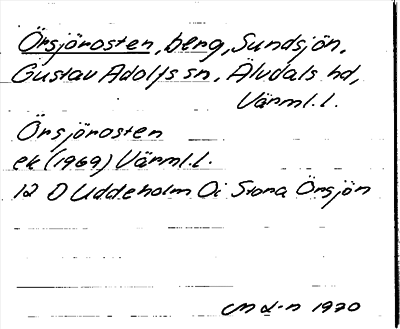 Örsjörosten, berg, Sundsjön,
Gustav Adolfs sn, Älvdals hd,
Värml.l.
Örsjörosten
ek (1969) Värml.l.
12 D Uddeholm 0i Stora Örsjön
1970